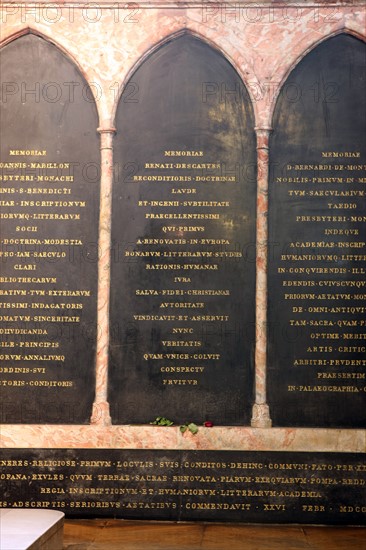 MEMORIAE
OANNIS · MABILLON
SBYTERI · MONACHI
INIS · S · BENEDICTI
AE · INSCRIPTIONVM
IORVMQ · LITTERARVM
SOCII
DOCTRINA · MODESTIA
PRO · IAM · SAECVLO
CLARI
BIBLIOTHECARVM
TISSIMI · INDAGATORIS
OMATVM · SINCERITATE
DIIVDICANDA
ILE · PRINCIPIS
ORVM · ANNALIVMQ
TORIS · CONDITORIS
MEMORIAE
RENATI · DESCARTES
RECONDITIORIS · DOCTRINAE
LAVDE
ET · INGENII · SVBTILITATE
PRAECELLENTISSIMI
QVI · PRIMVS
A · RENOVATIS · IN · EVROPA
BONARVM · LITTERARVM · STVDIIS
RATIONIS · HVMANAE
IVRA
SALVA · FIDEI · CHRISTIANAE
AVTORITATE
VINDICAVIT · ET · ASSERVIT
NVNC
VERITATIS
QVAM · VNICE · COLVIT
CONSPECTV
FRVITVR
MEMORIAE
D · BERNARDI · DE · MONT
NOBILIS · PRIMVM · IN · M
TVM · SAECVLARIVM
TAEDIO
PRESBYTERI · MON
INDEQVE
ACADEMIAE · INSCRIP
HVMANIORVMQ · LITTER
IN · CONQVIRENDIS · ILL
EDENDIS · CVIVSCVNQV
PRIORVM · AETATVM · MON
DE · OMNI · ANTIQVIT
TAM · SACRA · QVAM · P
OPTIME · MERIT
ARTIS · CRITIC
ARBITRI · PRVDENT
PRAESERTIM
IN · PALAEOGRAPHIA
NERES · RELIGIONE · PRIMVM · LOCVLIS · SVIS · CONDITOS · DEHINC · COMMVNI · FATO · PER · XX
OFANA · EXVLES · QVVM · TERRAE · SACRAE · RENOVATA · PIARVM · EXSEQVIARVM · POMPA · REDD
REGIA · INSCRIPTIONVM · ET · HVMANIORVM · LITTERARVM · ACADEMIA
S · ADSERTORIS · SERIORIBVS · AETATIBVS · COMMENDAVIT · XXVI · FEBR · MDCC